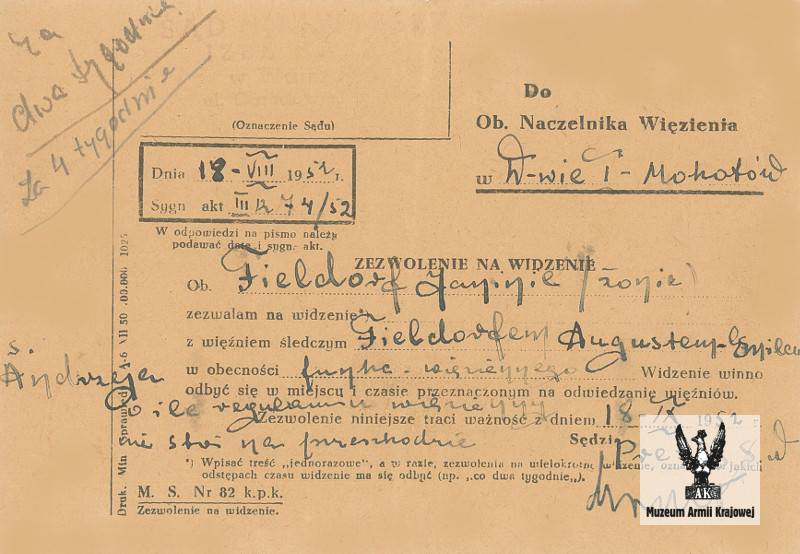 za
dwa tygodnie
za 4 tygodnie
(Oznaczenie Sądu)
Dnia 18-VIII 1952 r.
Sygn akt III K 74/52
W odpowiedzi na pismo należy
podawać datę i sygn. akt.
Do
Ob. Naczelnika Więzienia
w W-wie I - Mokotów
ZEZWOLENIE NA WIDZENIE
Ob. Fieldorf Janinie (żonie)
zezwalam na widzenie
z więźniem śledczym Fieldorfem Augustem-Emilem
s. Andrzeja
w obecności funkc. więziennego Widzenie winno
odbyć się w miejscu i czasie przeznaczonym na odwiedzanie więźniów.
o ile regulamin więzienny
Zezwolenie niniejsze traci ważność z dniem 18-IX 1952
nie stoi na przeszkodzie
Sędzia
*) Wpisać treść „jednorazowe”, a w razie, zezwolenia na wielokrotne widzenie, w jakich
odstępach czasu widzenie ma się odbyć (np. „co dwa tygodnie”).
M. S. Nr 82 k.p.k.
Zezwolenie na widzenie.
Druk. Min Sprawied. A-6 VII 50
AK
Muzeum Armii Krajowej